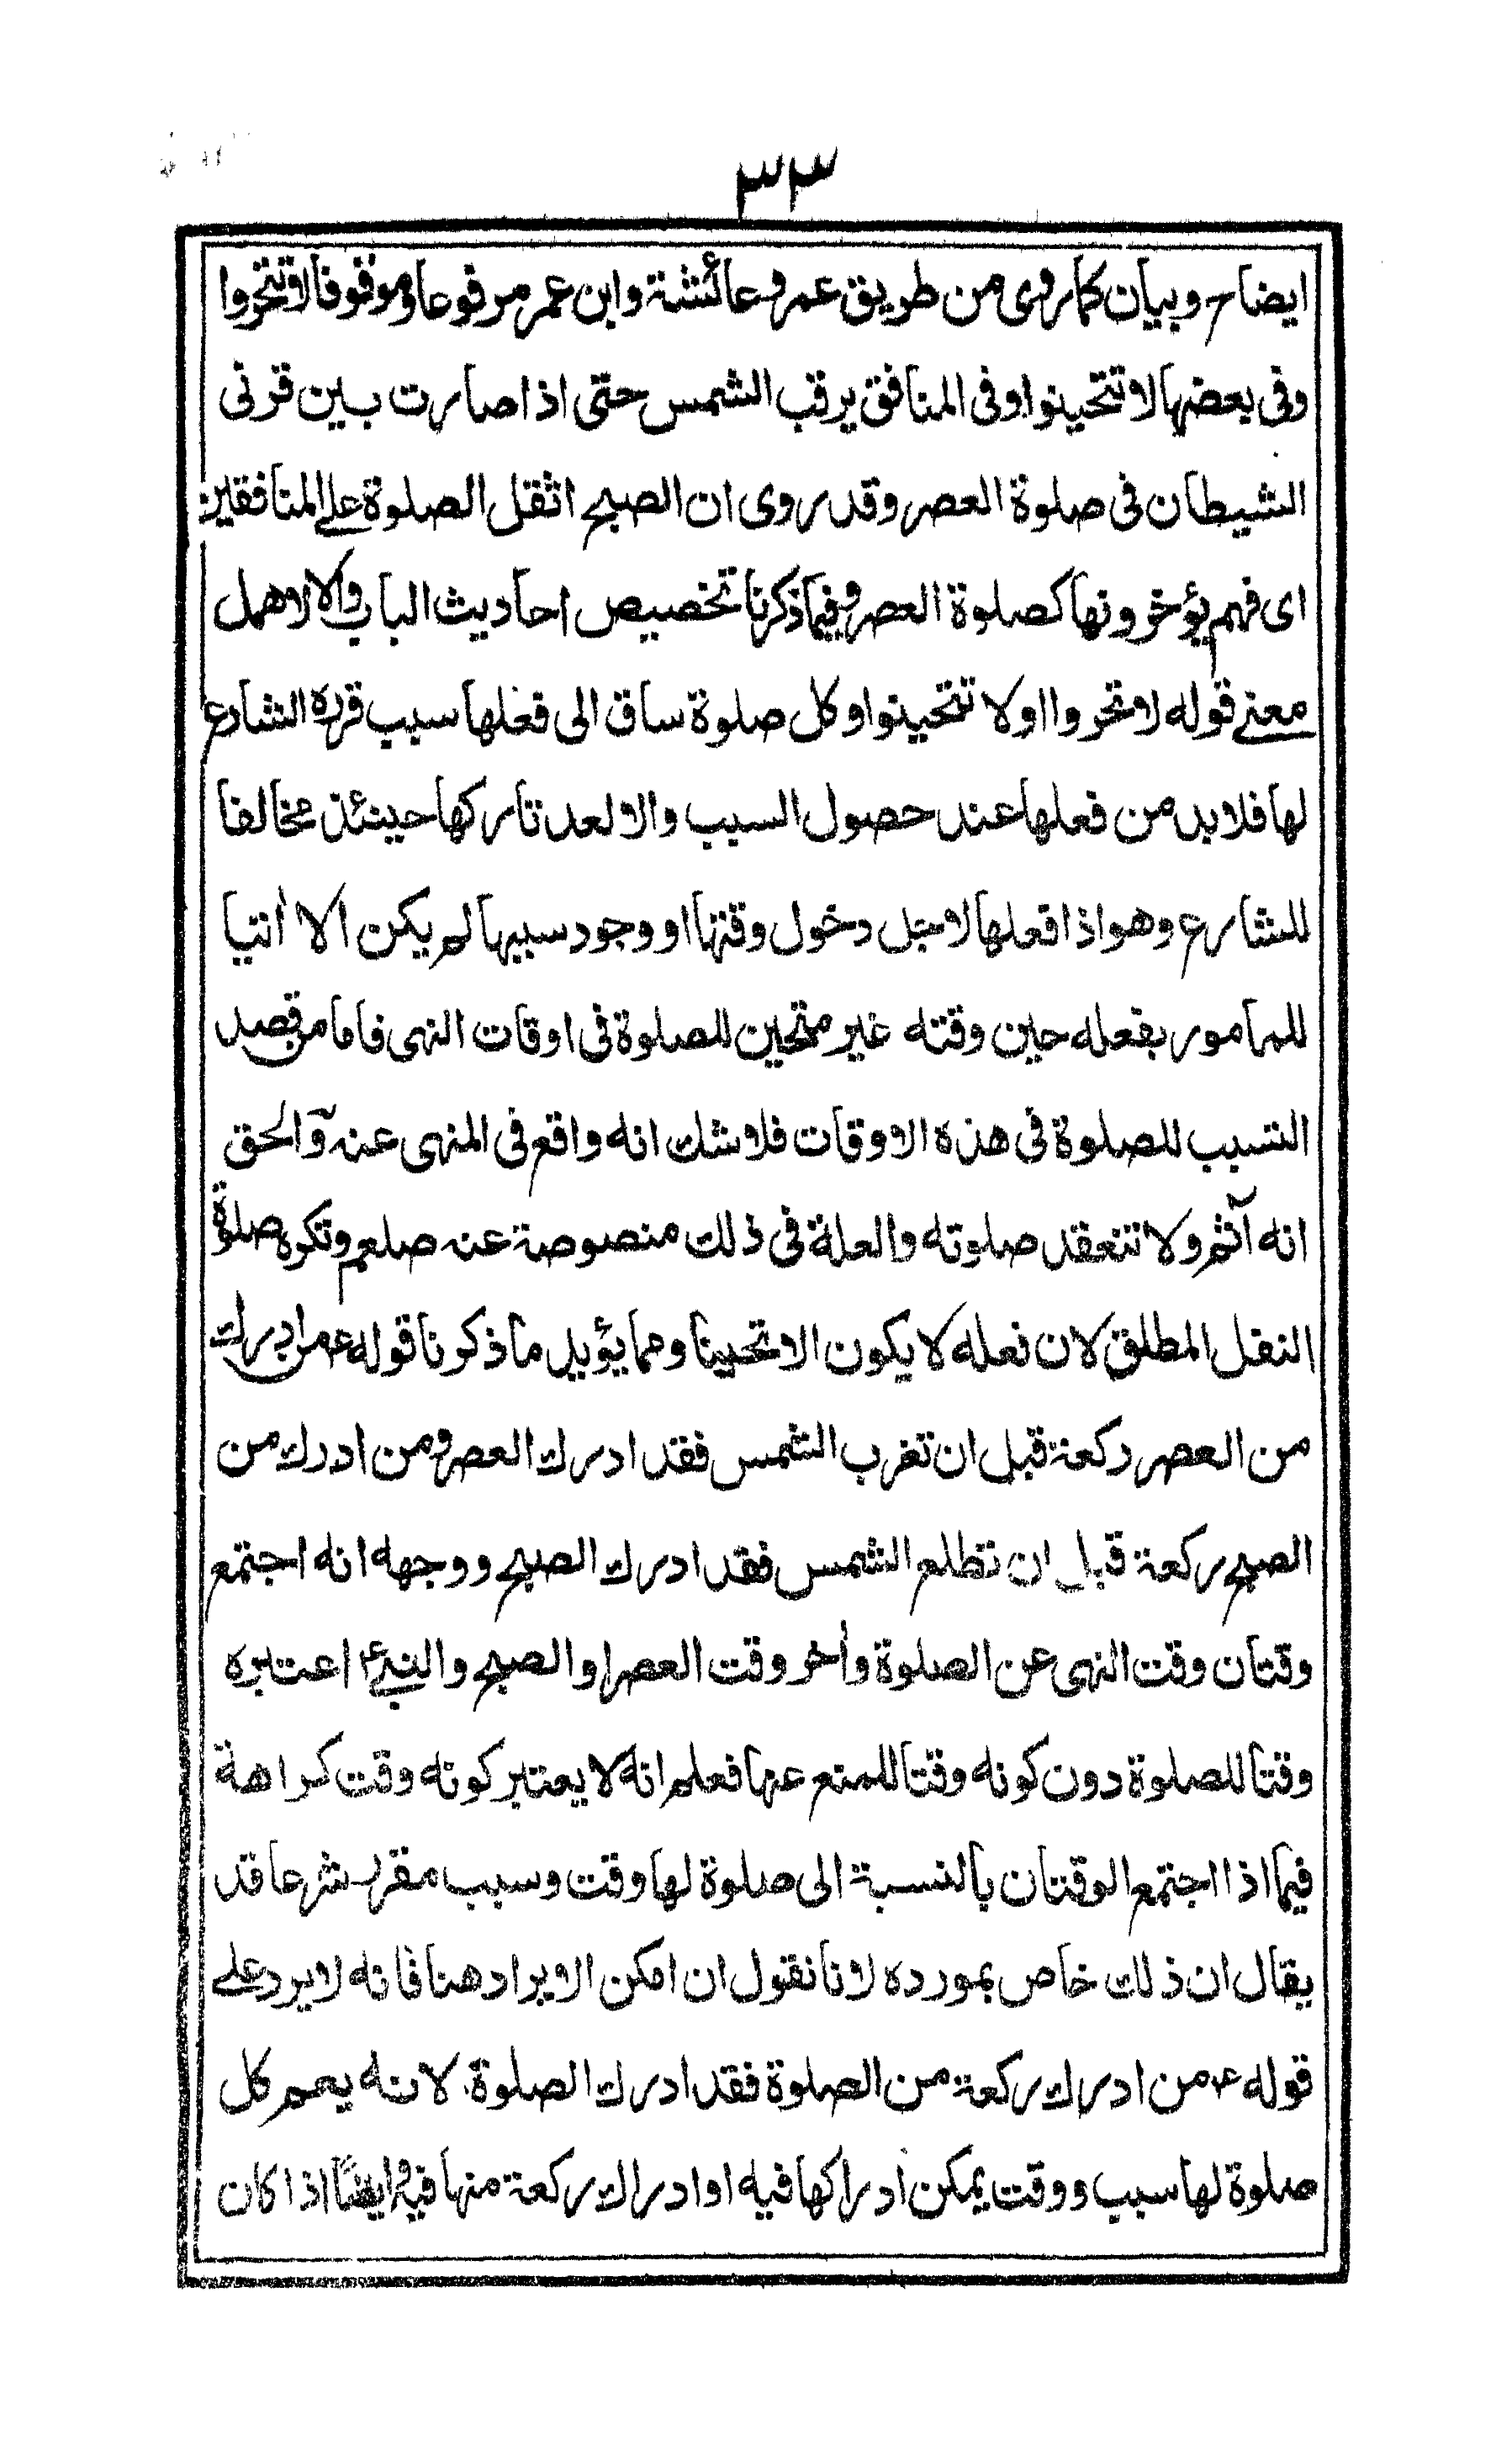 ٣٣
ايضاح وبيان كما روى من طريق عمر وعائشة وابن عمر مرفوعا وموقوفا لا تتحروا
وفى بعضها لا تتحينوا وفى المنافق يرقب الشمس حتى اذا صارت بين قرنى
الشيطان فى صلوة العصر وقد روى ان الصبح اثقل الصلوة على المنافقين
اى فهم يؤخرونها كصلوة العصر وفيما ذكرنا تخصيص احاديث الباب والا لاهمل
معنى قوله لا تحروا اولا تتحينوا وكل صلوة ساق الى فعلها سبب قرره الشارع
لها فلا بد من فعلها عند حصول السبب والا لعد تاركها حينئذ مخالفا
للشارع وهو اذا فعلها لاجل دخول وقتها او وجود سببها لم يكن الا اتيا
للمامور بفعله حين وقته غير متحين للصلوة فى اوقات النهى فاما من قصد
التسبب للصلوة فى هذه الاوقات فلا شك انه واقع فى المنهى عنه والحق
انه آثم ولا تنعقد صلوته والعلة فى ذلك منصوصة عنه صلعم وتكره صلوة
النفل المطلق لان فعله لا يكون الا تحيينا ومما يؤيد ما ذكرنا قوله ع من ادرك
من العصر ركعة قبل ان تغرب الشمس فقد ادرك العصر ومن ادرك من
الصبح ركعة قبل ان تطلع الشمس فقد ادرك الصبح ووجهه انه اجتمع
وقتان وقت النهى عن الصلوة وأخر وقت العصر او الصبح والنبى ع اعتبره
وقتا للصلوة دون كونه وقتا للمنع عنها فعلم انه لا يعتبر كونه وقت كراهة
فيما اذا اجتمع الوقتان بالنسبة الى صلوة لها وقت وسبب مقرر شرعا قد
يقال ان ذلك خاص بمورده لانا نقول ان امكن الايراد هنا فانه لا يرد على
قوله ع من ادرك ركعة من الصلوة فقد ادرك الصلوة لانه يعم كل
صلوة لها سبب ووقت يمكن ادراكها فيه او ادراك ركعة منها فيه وايضاً اذا كان